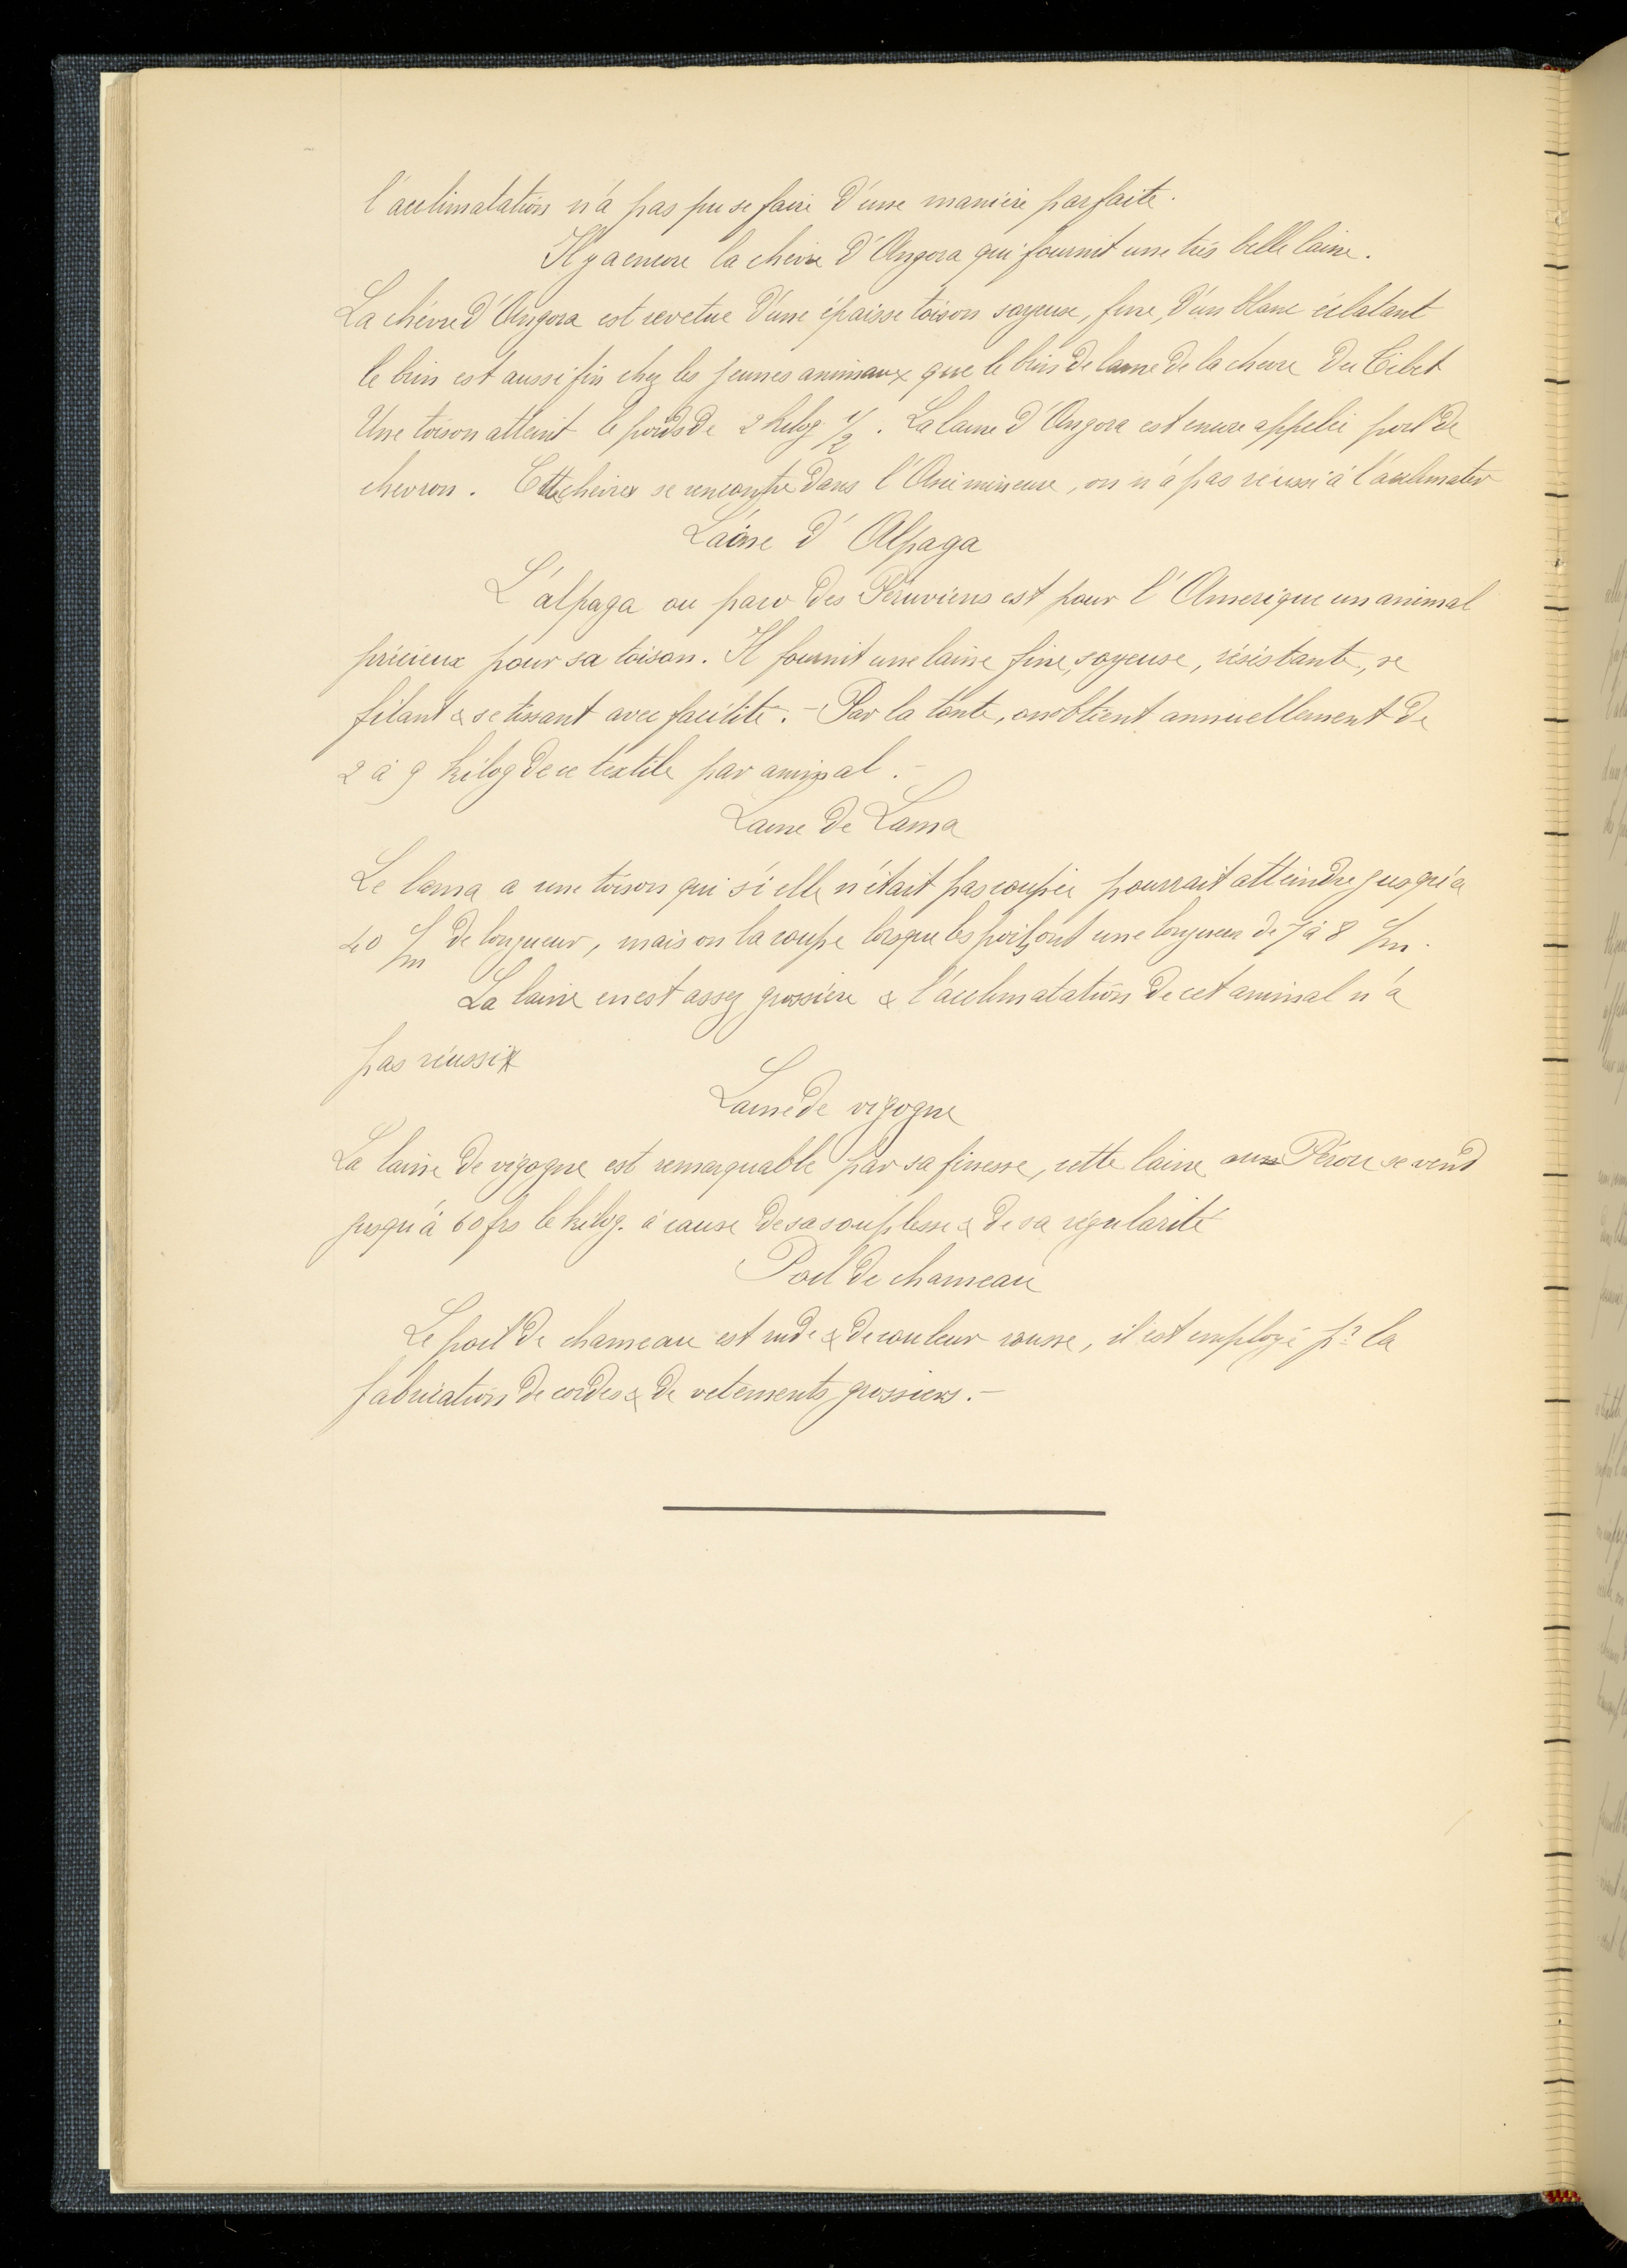 l'acclimatation n'a pas pu se faire d'une manière parfaite.
Il y a encore la chèvre d'Angora qui fournit une très belle laine.
La chèvre d'Angora est revetue d'une épaisse toison soyeuse, fine, d'un blanc éclatant
le brin est aussi fin chez les jeunes animaux que le brin de laine de la chevre du Tibet
Une toison atteint le poids de 2 kilog 1/2. La laine d'Angora est encore appelée poil de
chevron. Cette chèvre se rencontre dans l'Asie mineure, on n'a pas réussi à l'acclimater
Laine d'Alpaga
L'alpaga ou paco des Péruviens est pour l'Amerique un animal
précieux pour sa toison. Il fournit une laine fine, soyeuse, résistante, se
filant & se tissant avec facilité. - Par la tonte, on obtient annuellement de
2 à 9 kilog de ce textile par animal. -
Laine de Lama
Le lama a une toison qui si elle n'était pas coupée pourrait atteindre jusqu'à
40 c/m de longueur, mais on la coupe lorsque les poils ont une longueur de 7 à 8 c/m.
La laine en est assez grossière & l'acclimatation de cet animal n'a
pas réussi
Laine de vigogne
La laine de vigogne est remarquable par sa finesse, cette laine au Pérou se vend
jusqu'à 60 frs le kilog. à cause de sa souplesse & de sa régularité
Poil de chameau
Le poil de chameau est rude & de couleur rousse, il est employé pr la
fabrication de cordes & de vetements grossiers. -